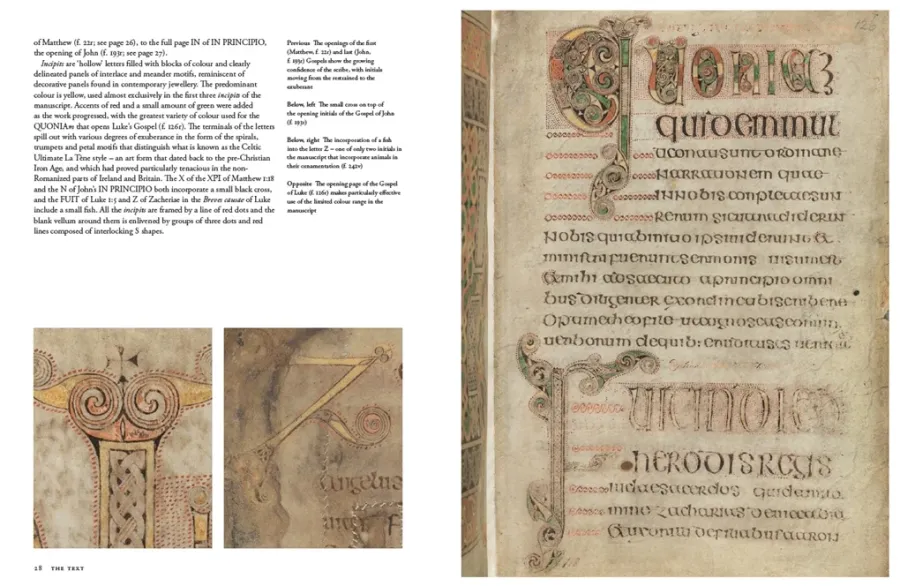 of Matthew (f. 22r; see page 26), to the full page IN of IN PRINCIPIO,
the opening of John (f. 193r; see page 27).
Incipits are ‘hollow’ letters filled with blocks of colour and clearly
delineated panels of interlace and meander motifs, reminiscent of
decorative panels found in contemporary jewellery. The predominant
colour is yellow, used almost exclusively in the first three incipit of the
manuscript. Accents of red and a small amount of green were added
as the work progressed, with the greatest variety of colour used for the
QUONIAm that opens Luke’s Gospel (f. 126r). The terminals of the letters
spill out with various degrees of exuberance in the form of the spirals,
trumpets and petal motifs that distinguish what is known as the Celtic
Ultimate La Tène style – an art form that dated back to the pre-Christian
Iron Age, and which had proved particularly tenacious in the non-
Romanized parts of Ireland and Britain. The X of the XPI of Matthew 1:18
and the N of John’s IN PRINCIPIO both incorporate a small black cross,
and the FUIT of Luke 1:5 and Z of Zacheriae in the Breves causae of Luke
include a small fish. All the incipits are framed by a line of red dots and the
blank vellum around them is enlivened by groups of three dots and red
lines composed of interlocking S shapes.
Previous The openings of the first
(Matthew, f. 22r) and last (John,
f. 193r) Gospels show the growing
confidence of the scribe, with initials
moving from the restrained to the
exuberant
Below, left The small cross on top of
the opening initials of the Gospel of John
(f. 193r)
Below, right The incorporation of a fish
into the letter Z – one of only two initials in
the manuscript that incorporate animals in
their ornamentation (f. 242v)
Opposite The opening page of the Gospel
of Luke (f. 126r) makes particularly effective
use of the limited colour range in the
manuscript
Z
angelus
28 THE TEXT
126
QUONIA
quidem mul
narrationem quae
in nobis completae sun
rerum
nobis qui ab initio ipsi
ministri fuerunt sermonis
a principio omni
bus diligenter
herodis regis
iudae sacerdos
zacharias